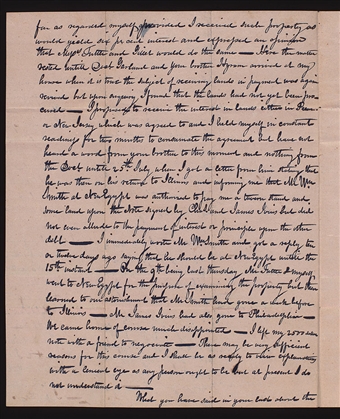 far as regarded myself provided I received such property as
would yield six pr cent interest and expressed an opinion
that Messrs and would do the same — Here the matter
rested until Doct Garland and your brother Hyrum arrived at my
house when it was the subject of receiving lands in payment was again
revived but upon enquiry I found that the lands had not yet been pro-
cured — I proposed to receive the interest in lands either in Penn
or New Jersey which was agreed to and I held myself in constant
readiness for two months to consumate the agreement but have not
heard a word from your brother to this moment and nothing from
the Doct until 25th July, when I got a letter from him stating that
he was then on his return to Illinois and informing me that Mr Wm
Smith at New Egypt was authorised to pay me a town stand and
some land upon the note signed by and James Ivins but did
not even allude to the payment of interest or principle upon the other
debt — I immediately wrote Mr Wm Smith and got a reply ten
or twelve days ago saying that he should be at New Egypt until the
15th instant — On the 9th being last Thursday Mr & myself
went to New Egypt for the purpose of examining the property but then
learned to our astonishment that Mr Smith had gone a week before
to Illinois — Mr James Ivins had also gone to Philadelphia —
We came home of course much disappointed — I left my 2500
note with a friend to negociate — There may be very sufficient
reasons for this course and I shall be as ready to view explanatory
with a lenient eye as any person ought to be but at present I do
not understand it —
What you have said in your letter about the